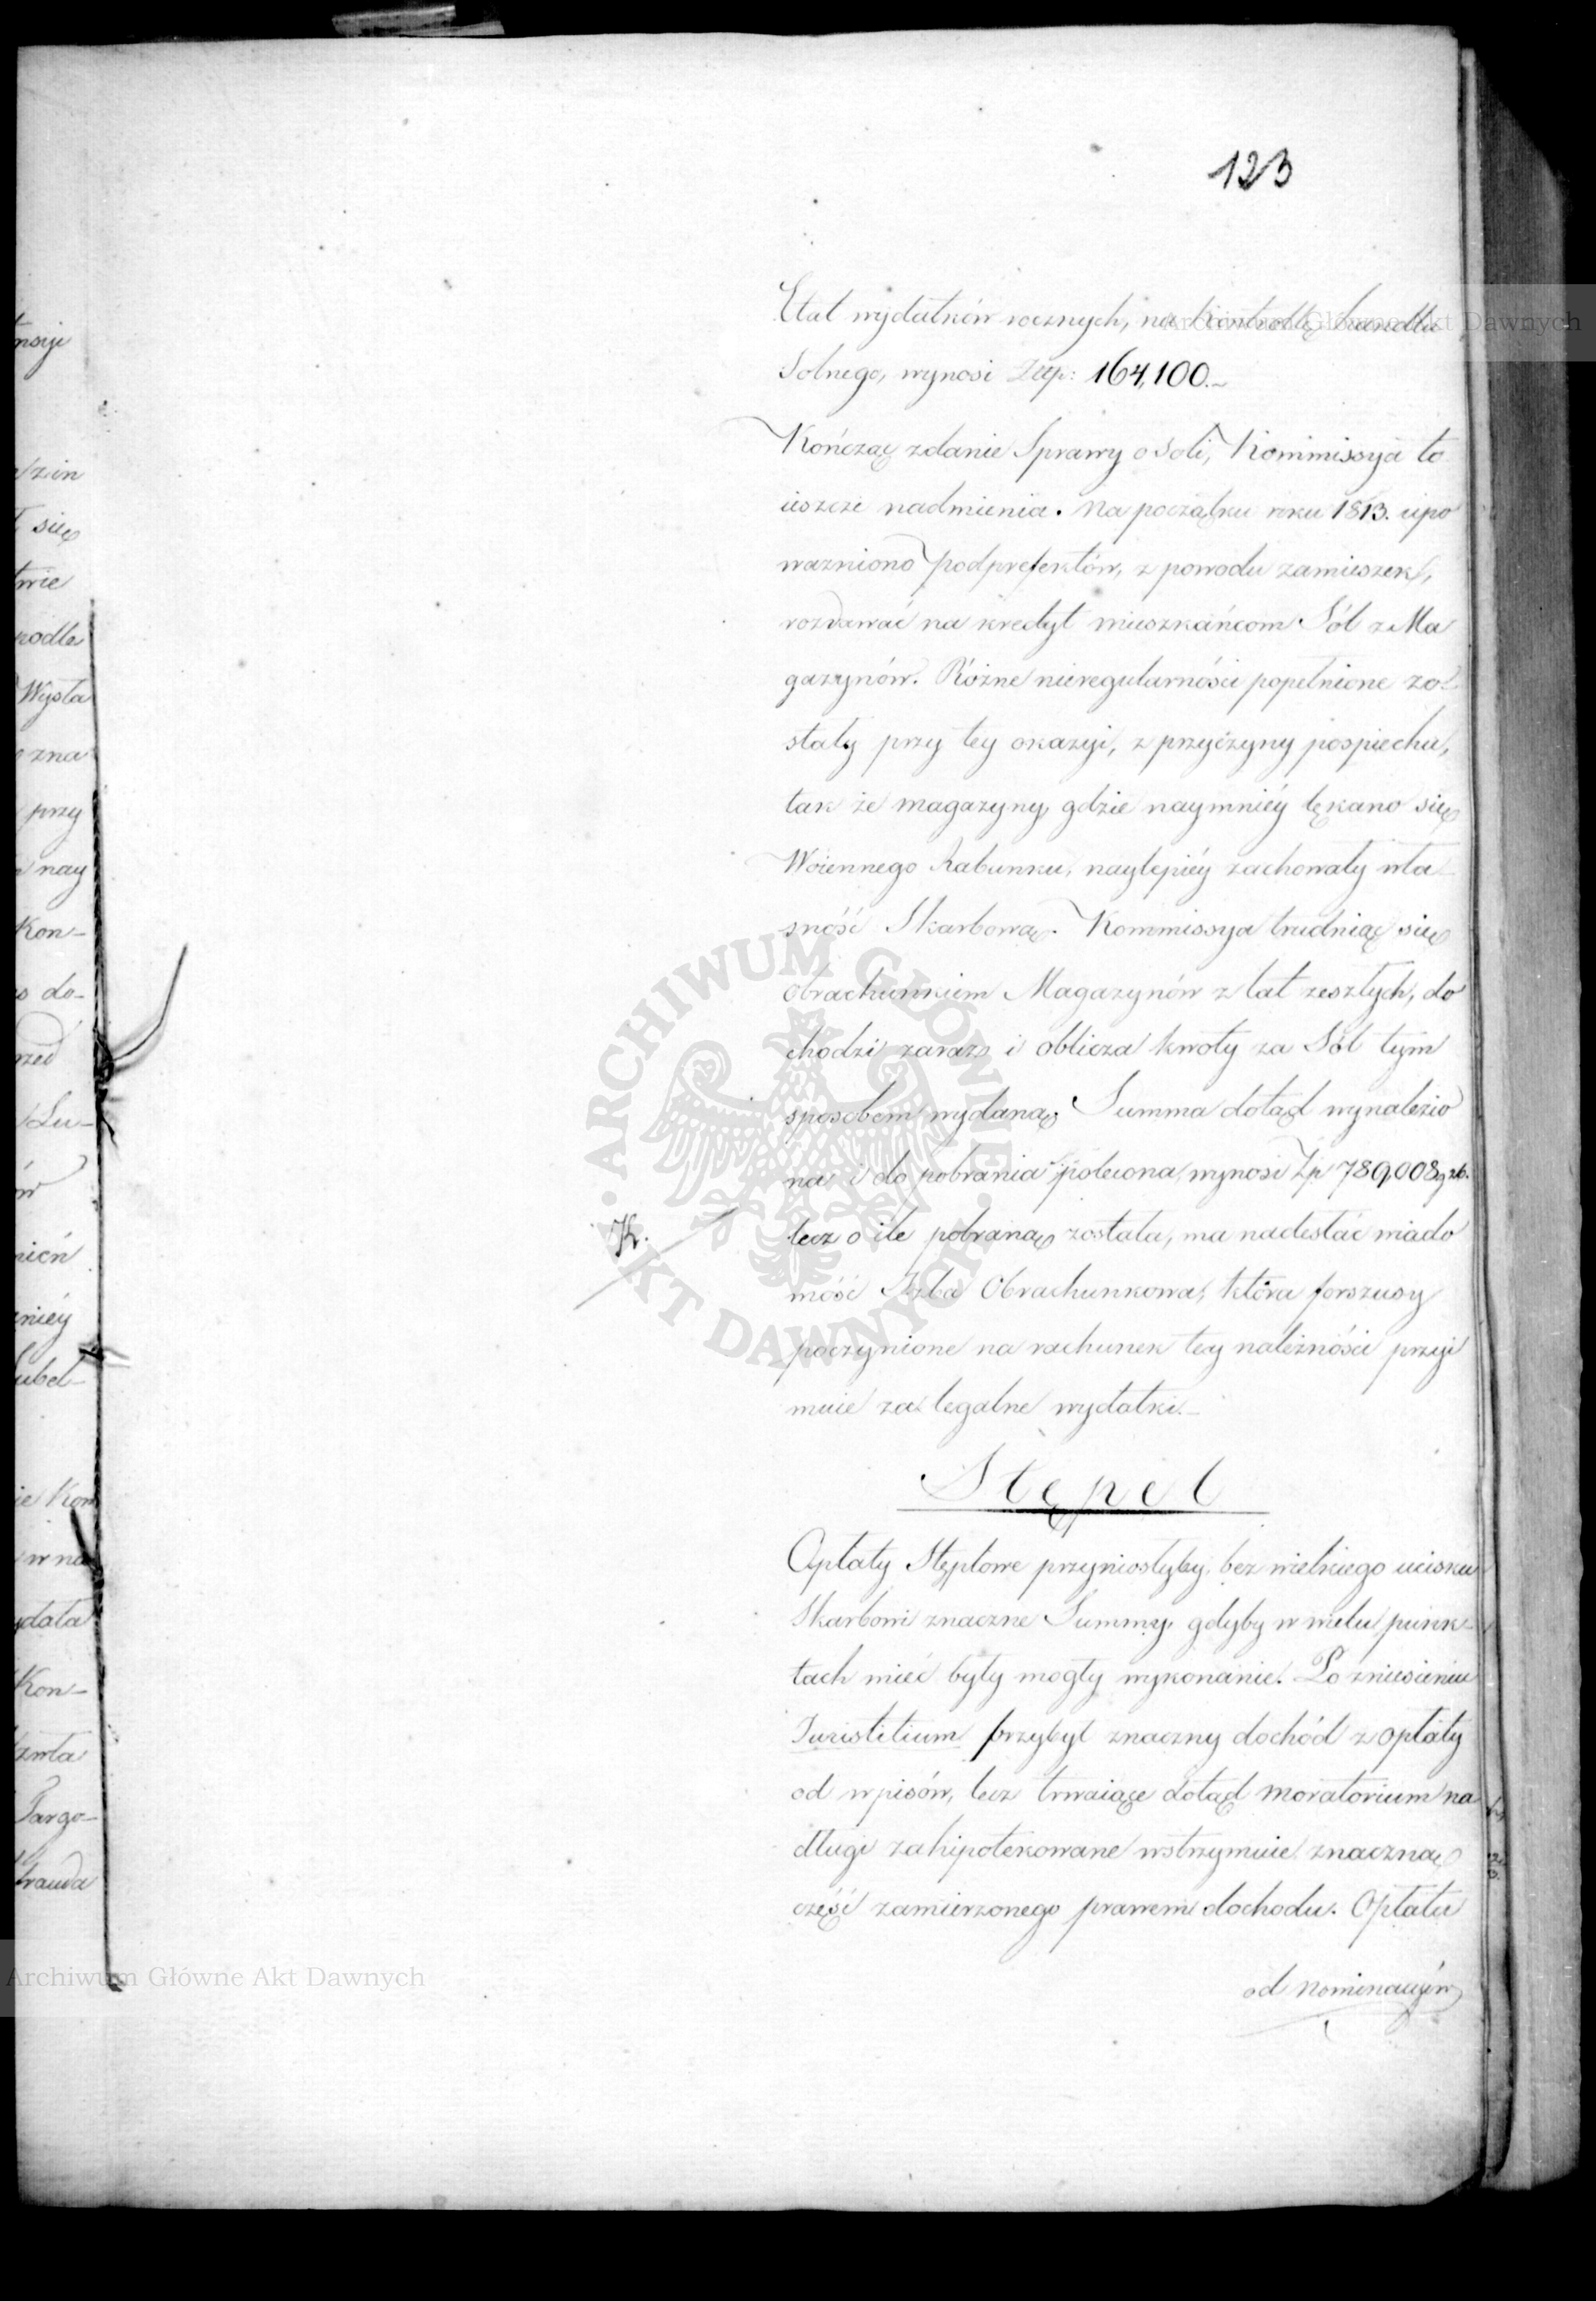 123
Etat wydatków rocznych, na Kontrollę handlu
Solnego, wynosi Złłp: 164,100.~
Kończąc zdanie Sprawy o Soli, Kommissya to
ieszcze nadmienia. Na początku roku 1813. upo
ważniono podprefektów, z powodu zamieszek,
rozdawać na kredyt mieszkańcom Sól z Ma
gazynów. Różne nieregularności popełnione zo-
stały przy tey okazyi, z przyczyny pospiechu,
tak że magazyny, gdzie naymniéy lękano się
Woiennego Rabunku, naylepiéy zachowały wła-
sność Skarbową. Kommissya trudniąc się
obrachunkiem Magazynów z lat zeszłych, do
chodzi zaraz i oblicza kwoty za Sól tym
sposobem wydaną. Summa dotąd wynalezio
na i do pobrania polecona, wynosi Złp 789,008
K.
lecz o ile pobraną została, ma nadesłać wiado
mość Izba Obrachunkowa, która forszusy
poczynione na rachunek tey należności przyi
muie za legalne wydatki.-
Stępel
Opłaty Stęplowe przyniosłyby, bez wielkiego ucisku
Skarbowi znaczne Summy, gdyby w wielu punk-
tach mieć były mogły wykonanie. Po zniesieniu
Juristitium przybył znaczny dochód z opłaty
od wpisów, lecz trwaiące dotąd moratorium na
długi zahipotekowane wstrzymuie znaczną
część zamierzonego prawem dochodu. Opłata
od Nominacyów
nsyi
dzin
się
twie
podle
Wysta
zna
przy
nay
Kon-
do-
rzed
Lu-
ów
nień
niéy
Lubel-
ie Kom
w na
ydała
Kon-
zwła
Targo-
Archiwum Główne Akt Dawnych
ARCHIWUM GŁÓWNE AKT DAWNYCH
Archiwum Główne Akt Dawnych